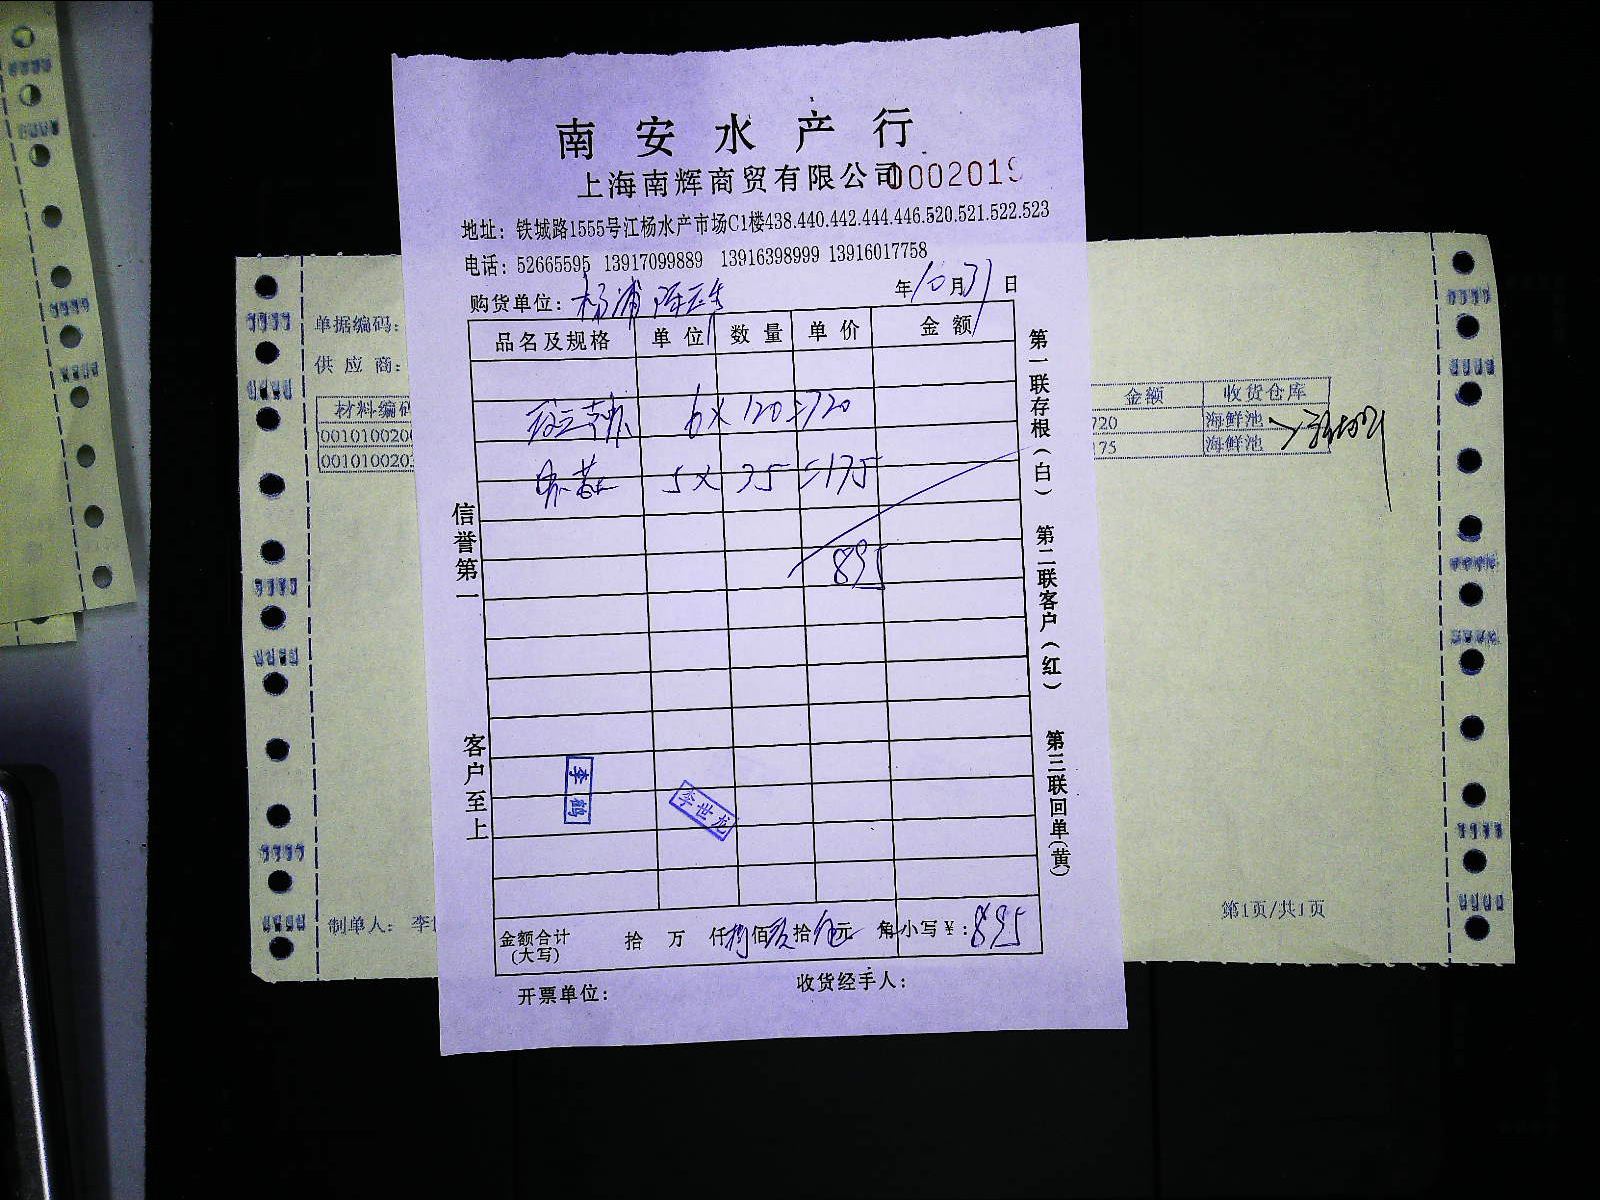 南安水产行
上海南辉商贸有限公司 000201
地址：铁城路1555号江杨水产市场C1楼438.440.442.444.446.520.521.522.523
电话：52665595 13917099889 13916398999 13916017758
购货单位：杨浦 年10月31日
品名及规格 单位 数量 单价 金额
6×120=720
5×35=175
895
信誉第一
客户至上
第一联存根（白） 第二联客户（红） 第三联回单（黄）
李鹤
李世龙
金额合计（大写） 拾 万 仟 捌佰 玖拾 伍元 角 小写￥：895
开票单位： 收货经手人：
单据编码：
供应商：
材料编码
00101002
00101002
金额 收货仓库
720 海鲜池
175 海鲜池
制单人：李
第1页/共1页